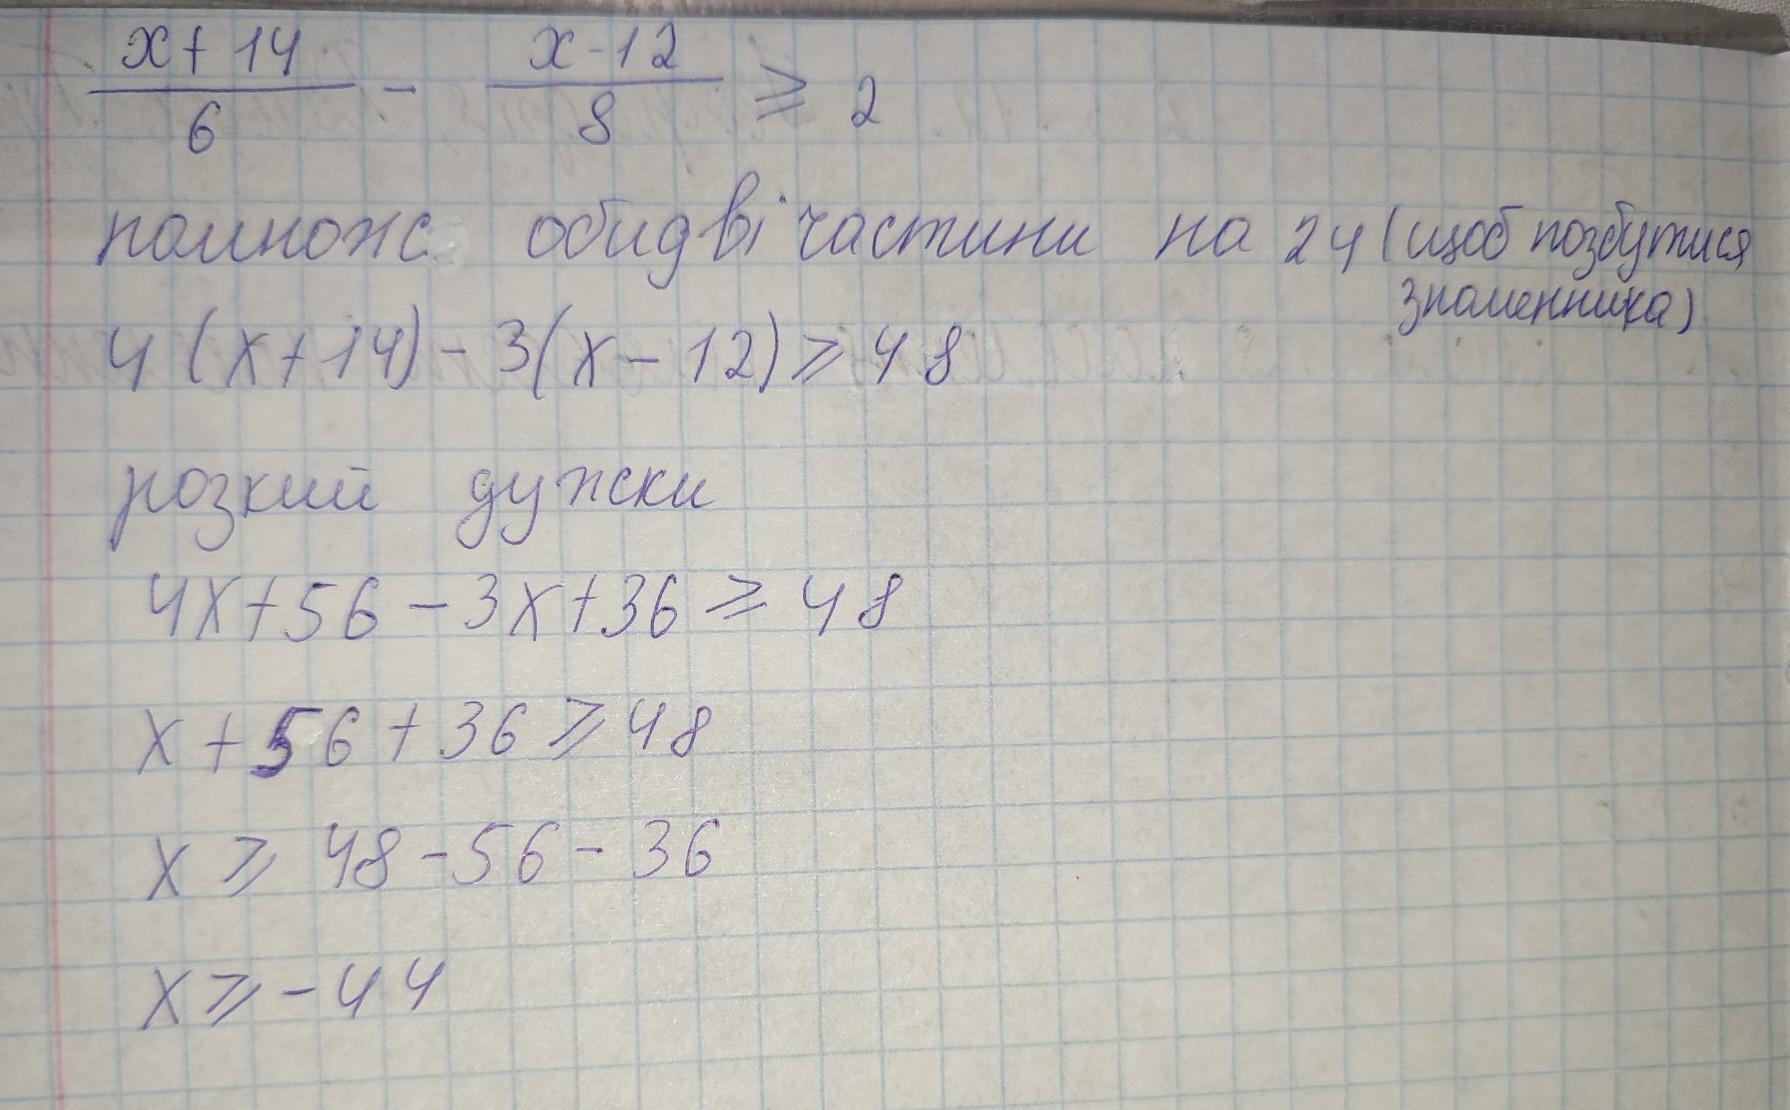 x+14 / 6 - x-12 / 8 ⩾ 2
помнож обидві частини на 24 (щоб позбутися
знаменника)
4(x+14)-3(x-12)⩾48
розкий дужки
4x+56-3x+36⩾48
x+56+36⩾48
x⩾48-56-36
x⩾-44